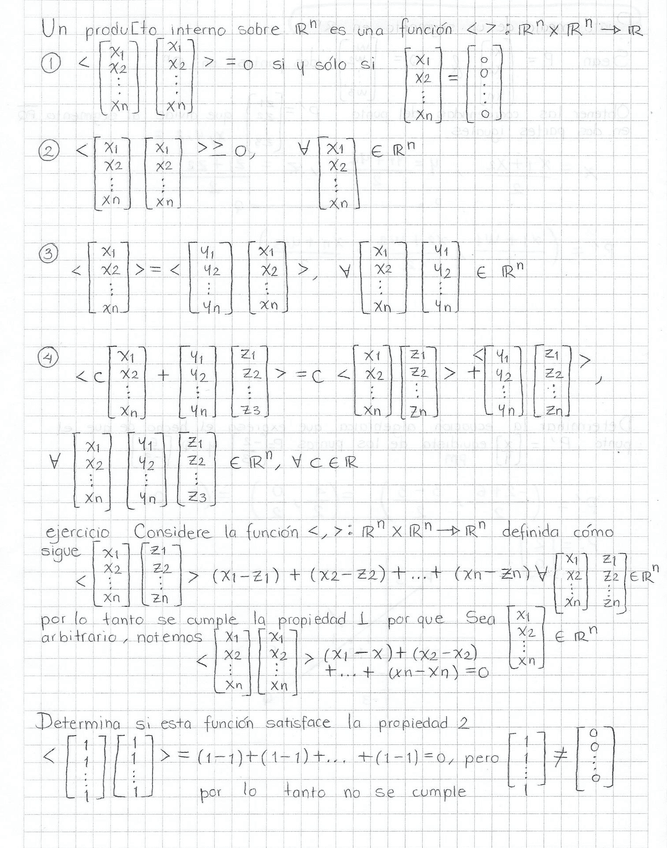 Un producto interno sobre ℝⁿ es una función < > : ℝⁿ × ℝⁿ → ℝ
① < [x1 x2 ⋮ xn] [x1 x2 ⋮ xn] > = 0 si y sólo si [x1 x2 ⋮ xn] = [0 0 ⋮ 0]
② < [x1 x2 ⋮ xn] [x1 x2 ⋮ xn] > ≥ 0, ∀ [x1 x2 ⋮ xn] ∈ ℝⁿ
③ < [x1 x2 ⋮ xn] > = < [y1 y2 ⋮ yn] [x1 x2 ⋮ xn] >, ∀ [x1 x2 ⋮ xn] [y1 y2 ⋮ yn] ∈ ℝⁿ
④ < c [x1 x2 ⋮ xn] + [y1 y2 ⋮ yn] [z1 z2 ⋮ z3] > = c < [x1 x2 ⋮ xn] [z1 z2 ⋮ zn] > + < [y1 y2 ⋮ yn] [z1 z2 ⋮ zn] >,
∀ [x1 x2 ⋮ xn] [y1 y2 ⋮ yn] [z1 z2 ⋮ z3] ∈ ℝⁿ, ∀ c ∈ ℝ
ejercicio Considere la función <, > : ℝⁿ × ℝⁿ → ℝⁿ definida cómo
sigue < [x1 x2 ⋮ xn] [z1 z2 ⋮ zn] > (x1-z1) + (x2-z2) + ... + (xn-zn) ∀ [x1 x2 ⋮ xn] [z1 z2 ⋮ zn] ∈ ℝⁿ
por lo tanto se cumple la propiedad 1 por que Sea [x1 x2 ⋮ xn] ∈ ℝⁿ
arbitrario, notemos < [x1 x2 ⋮ xn] [x1 x2 ⋮ xn] > (x1-x) + (x2-x2)
+ ... + (xn-xn) = 0
Determina si esta función satisface la propiedad 2
< [1 1 ⋮ 1] [1 1 ⋮ 1] > = (1-1)+(1-1)+... +(1-1)=0, pero [1 1 ⋮ 1] ≠ [0 0 ⋮ 0]
por lo tanto no se cumple